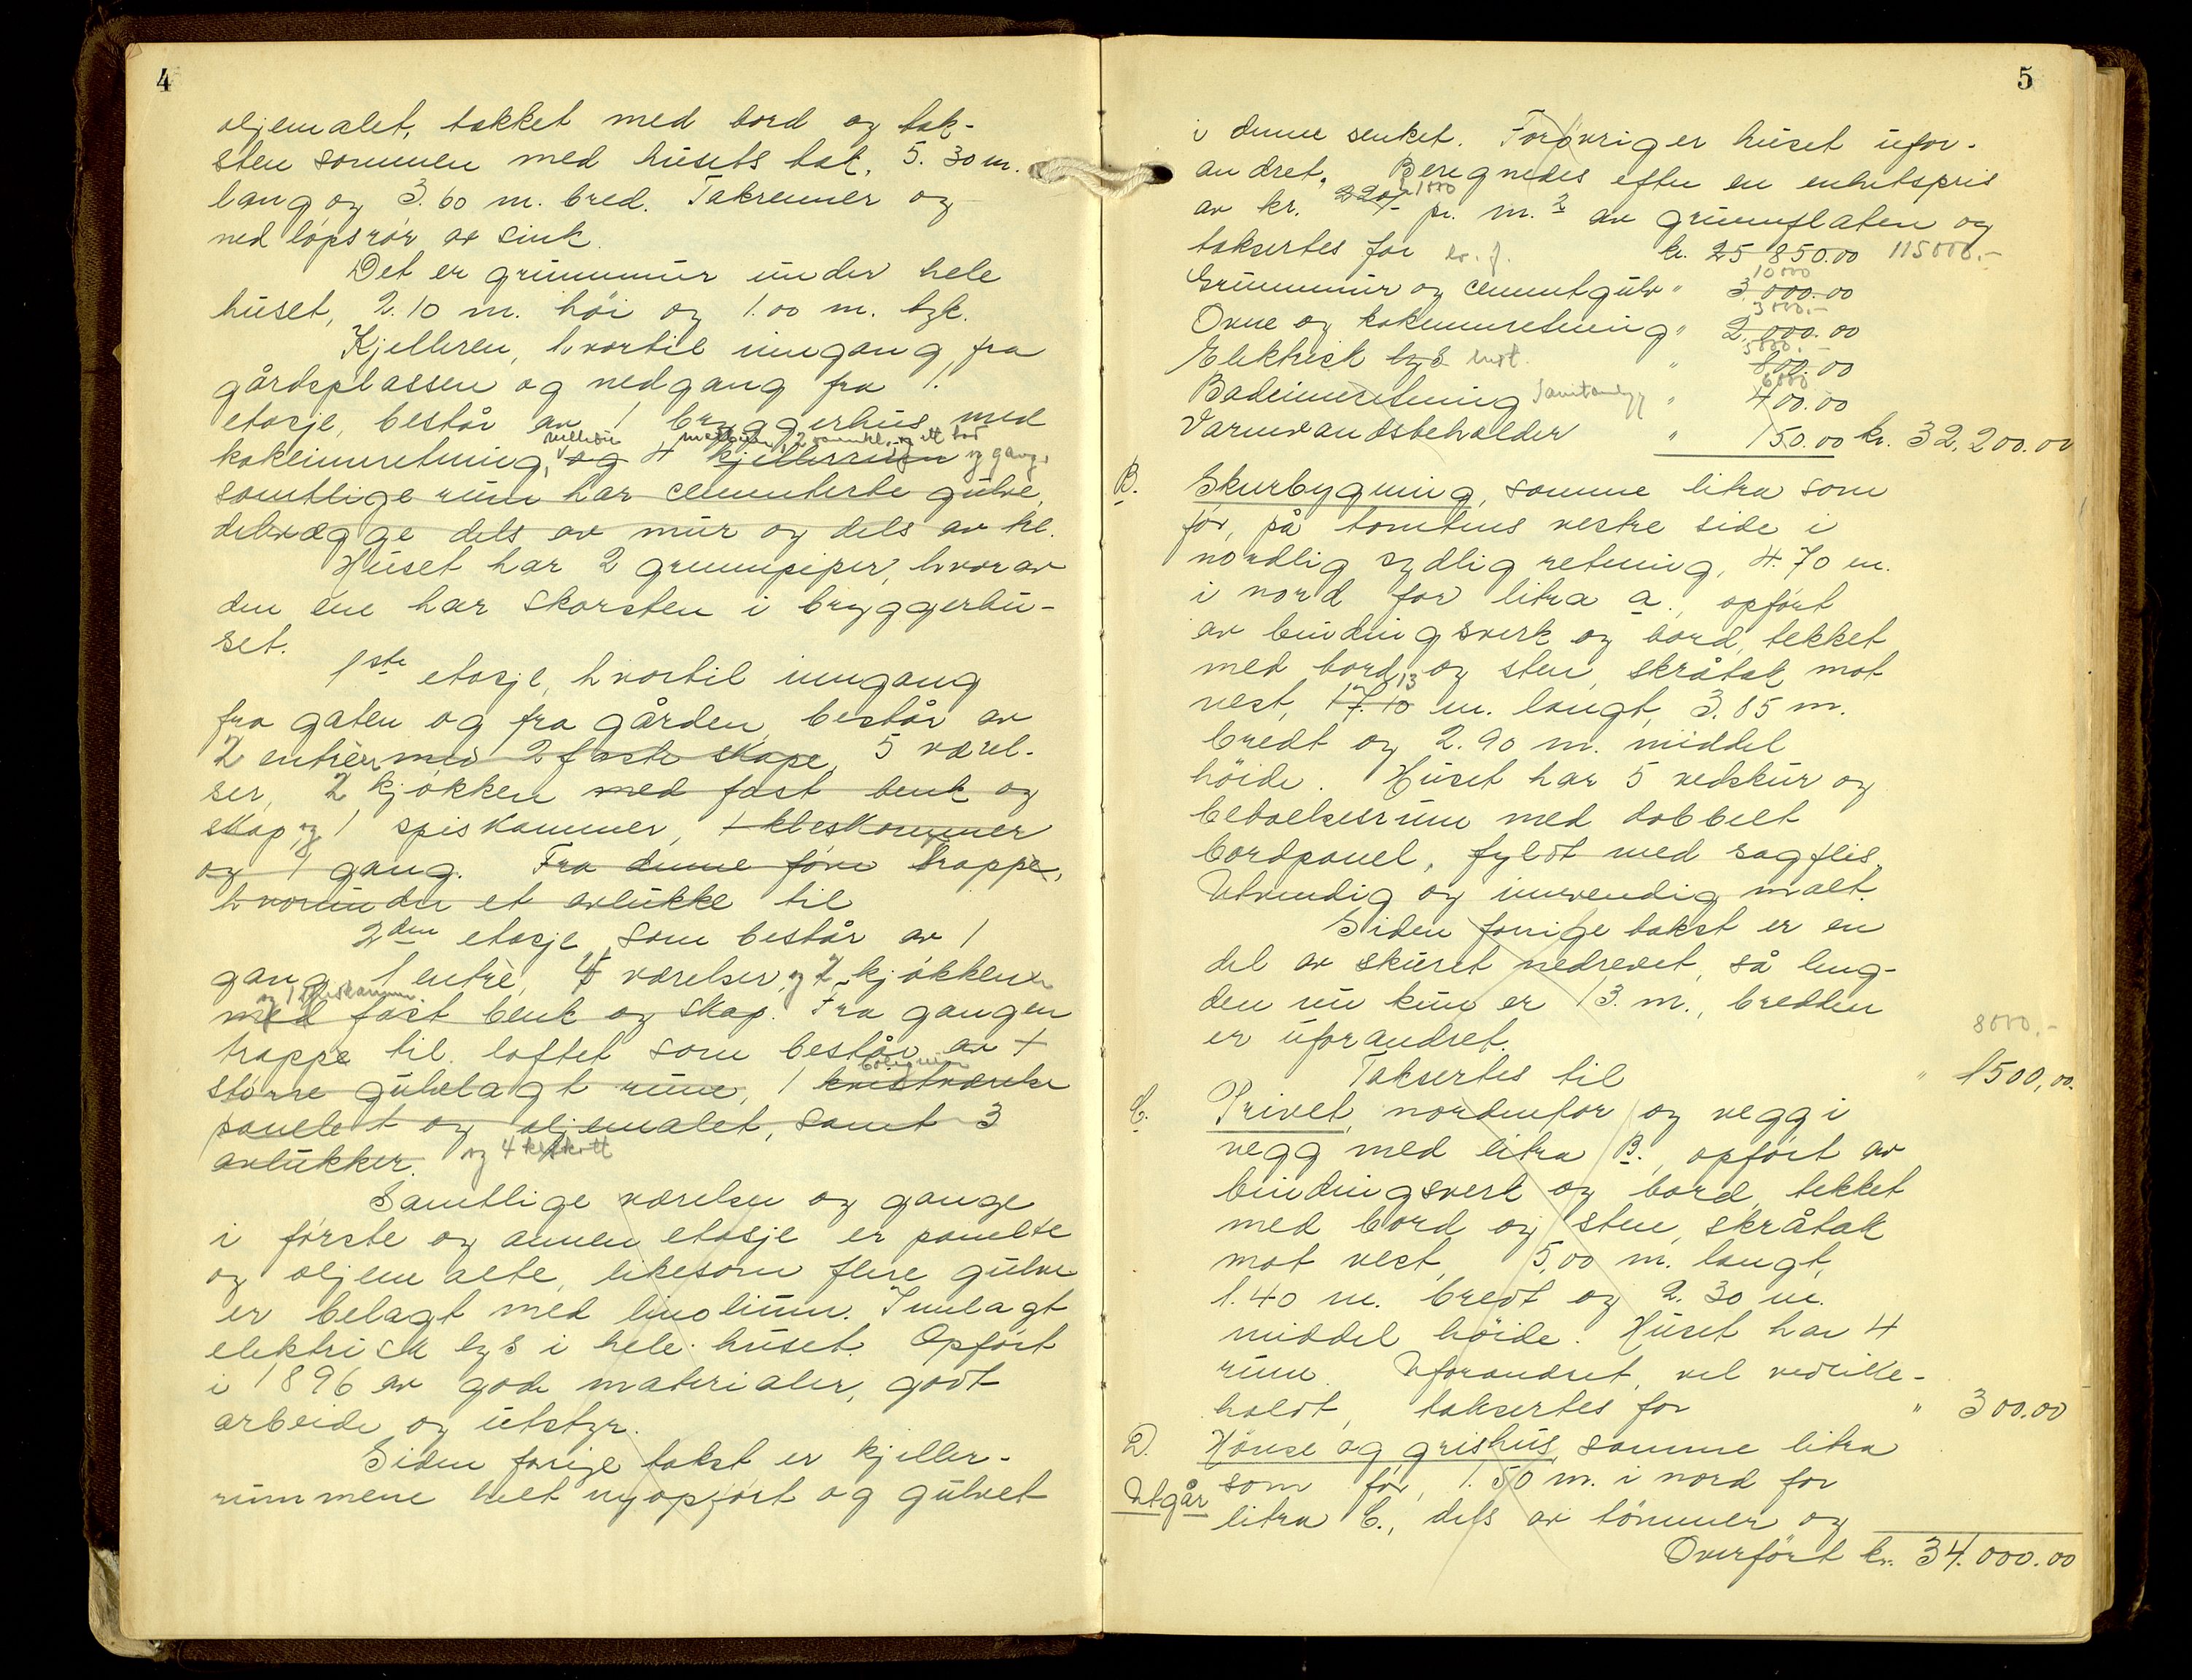 4
oljemalet, tekket med bord og tak-
sten sammen med husets tak, 5.30 m.
lang og 3.60 m. bred. Takrenner og
nedløpsrør av sink.
Det er grunnmur under hele
huset, 2.10 m. høi og 1.00 m. tyk.
Kjelleren, hvortil inngang fra
gårdsplassen og nedgang fra 1.
etasje, består av 1 bryggerhus med
kokeinnretning, og 4 kjellerrum og gang.
samtlige rum har cementerte gulve,
delvægge dels av mur og dels av tre.
Huset har 2 grunnpiper, hvorav
den ene har skorsten i bryggerhu-
set.
1ste etasje, hvortil inngang
fra gaten og fra gården, består av
2 entrèer med 2 faste skape, 5 værel-
ser, 2 kjøkken med fast benk og
skap, og 1 spiskammer, 1 kleskammer
og 1 gang. Fra denne fører trappe,
hvorunder et avlukke til
2den etasje, som består av 1
gang, 1 entrè, 4 værelser, og 2 kjøkkener
og 1 spiskammer.
med fast benk og skap. Fra gangen
trappe til loftet som består av 1
større gulvlagt rum, 1 kvistværelse
panelet og oljemalet, samt 3
avlukker. og 4 kleskott
Samtlige værelser og gange
i første og annen etasje er panelte
og oljemalte, likesom flere gulve
er belagt med linoleum. Innlagt
elektrisk lys i hele huset. Opført
i 1896 av gode materialer, godt
arbeide og utstyr.
Siden forrige takst er kjeller-
rummene helt nyopført og gulvet
5
i denne senket. Forøvrig er huset ufor-
andret. Beregnedes efter en enhetspris
1000
av kr. 220/- pr. m.2 av grunnflaten og
taksertes for kr. 25 850.00 115000.-
10000
Grunnmur og cementgulv " 3 000.00
3000.-
Ovne og kokeinnretning " 2 000.00
5000.-
Elektrisk lys innt. " 800.00
6000
Badeinnretning Sanitæranlegg " 400.00
Varmvandsbeholder " 150.00 kr. 32,200.00
B. Skurbygning, samme litra som
før, på tomtens vestre side i
nordlig sydlig retning, 4.70 m.
i nord for litra a., opført
av bindingsverk og bord, tekket
med bord og sten, skråtak mot
vest, 17.10 13 m. langt, 3.85 m.
bredt og 2.90 m. middel
høide. Huset har 5 vedskur og
bekvelsesrum med dobbelt
bordpanel, fyldt med sagflis.
Utvendig og innvendig malt.
Siden forrige takst er en
del av skuret nedrevet, så leng-
den nu kun er 13. m., bredden
er uforandret.
8000.-
Taksertes til " 1500,00.
C. Privet, nordenfor og vegg i
vegg med litra B., opført av
bindingsverk og bord, tekket
med bord og sten, skråtak
mot vest, 5,00 m. langt,
1.40 m. bredt og 2.30 m.
middel høide. Huset har 4
rum. Uforandret, vel vedlike-
holdt, taksertes for " 300.00
D. Hønse og grishus, samme litra
som før, 1.50 m. i nord for
Utgår litra C., dels av tømmer og
Overført kr. 34.000.00